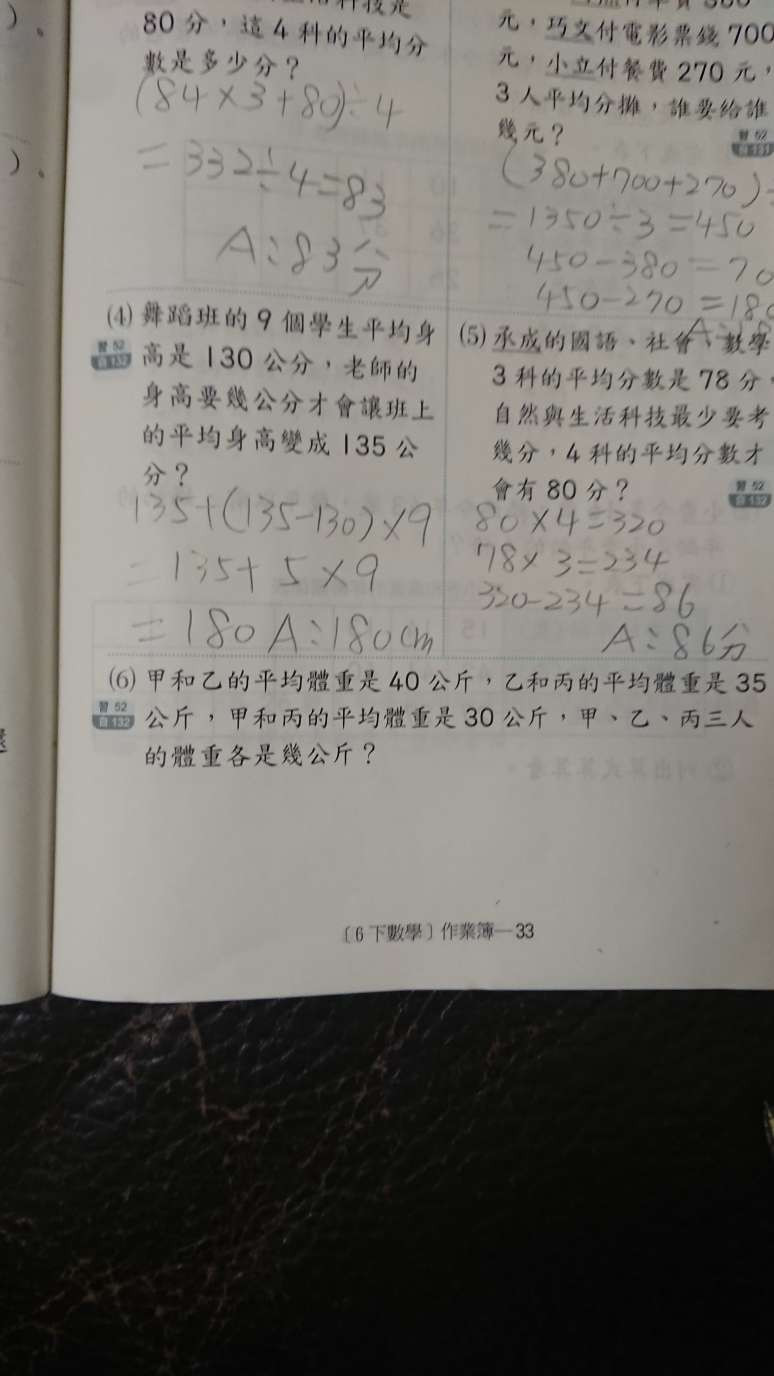 80 分，這 4 科的平均分
數是多少分？
(84×3+80)÷4
=332÷4=83
A:83分
元，巧文付電影票錢 700
元，小立付餐費 270 元，
3 人平均分攤，誰要給誰
幾元？
習 52
(380+700+270)
=1350÷3=450
450-380=70
450-270=180
(4) 舞蹈班的 9 個學生平均身
習 52
自 132
高是 130 公分，老師的
身高要幾公分才會讓班上
的平均身高變成 135 公
分？
135+(135-130)×9
=135+5×9
=180 A:180cm
(5) 承成的國語、社會、數學
3 科的平均分數是 78 分，
自然與生活科技最少要考
幾分，4 科的平均分數才
會有 80 分？
習 52
自 132
80×4=320
78×3=234
320-234=86
A:86分
(6) 甲和乙的平均體重是 40 公斤，乙和丙的平均體重是 35
習 52
自 132
公斤，甲和丙的平均體重是 30 公斤，甲、乙、丙三人
的體重各是幾公斤？
〔6 下數學〕作業簿—33